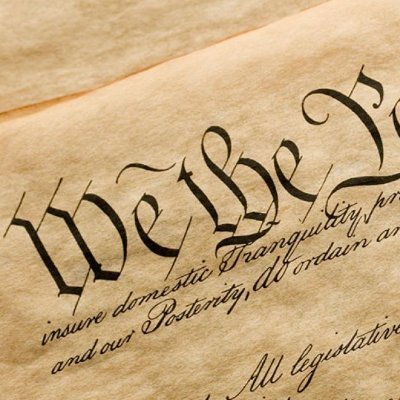 We the Pe
insure domestic Tranquility, pr
and our Posterity, do ordain an
All legislative